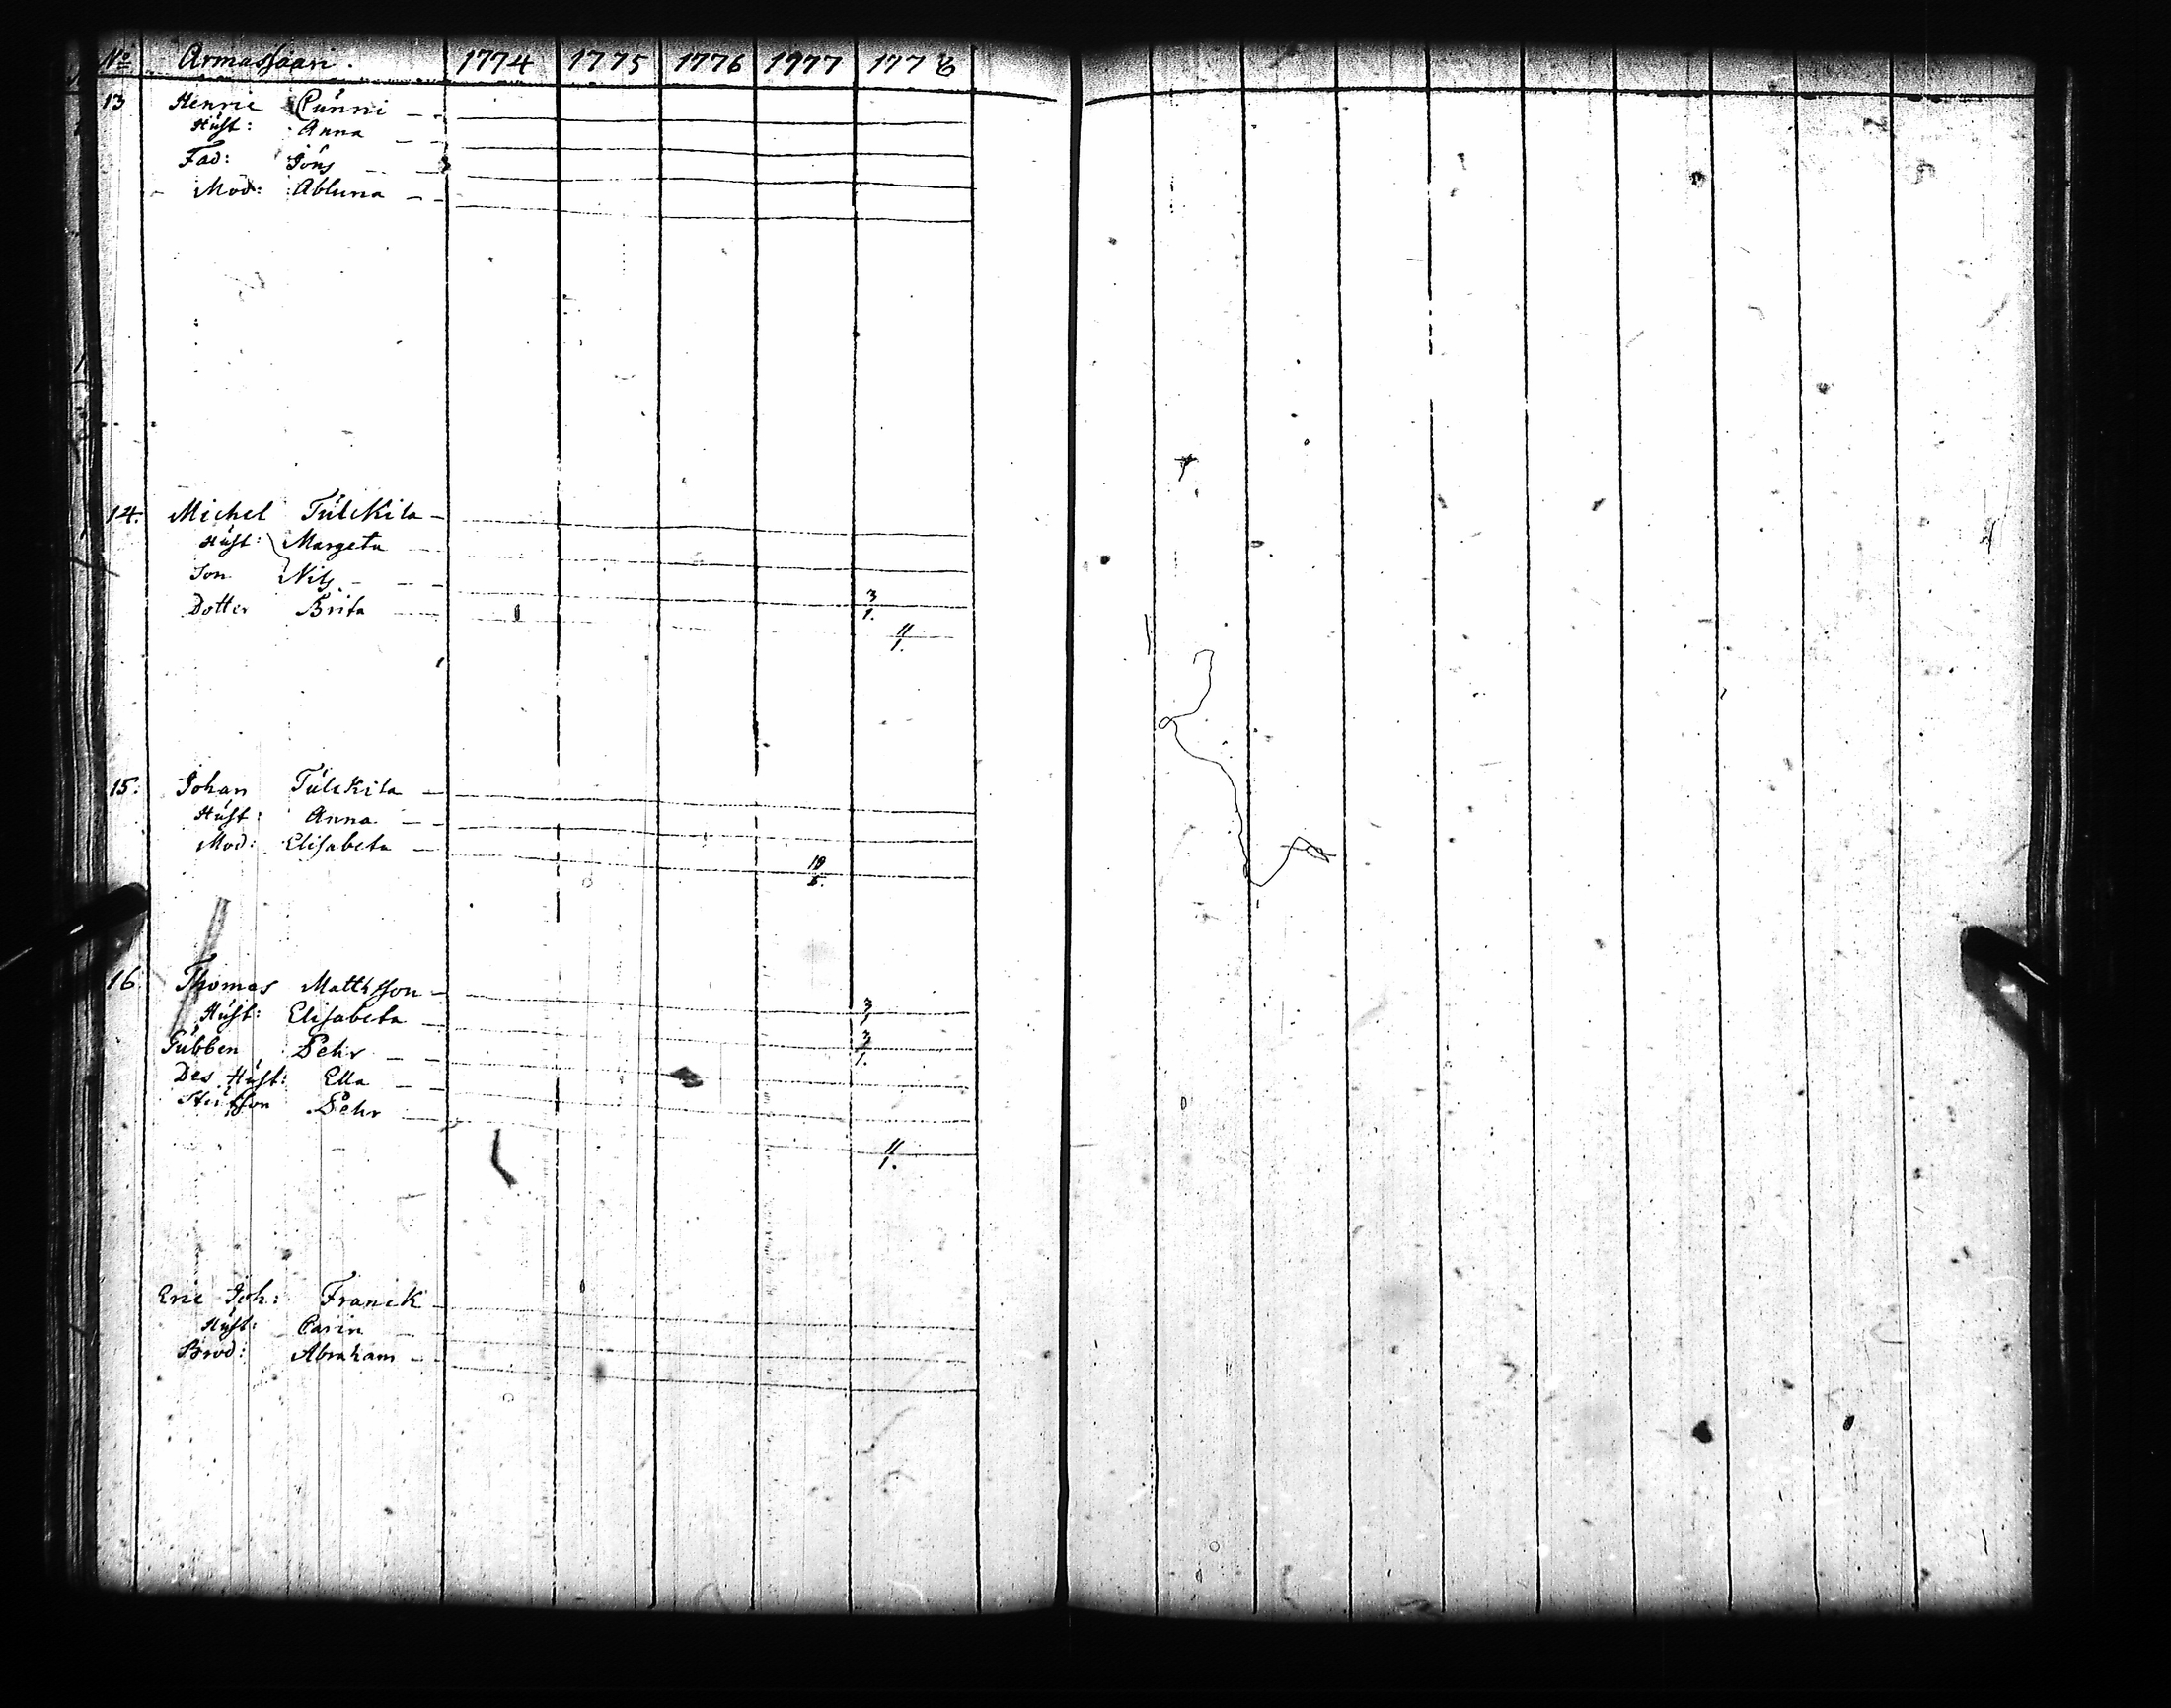 No Armassaari. 1774 1775 1776 1777 1778
13 Henric Punni
Hust: Anna
Fad: Jöns
Mod: Abluna
14. Michel Tulckila
Hust: Margeta
Son Nils 3/1.
Dotter Brita 11/1.
15. Johan Tulckila
Hust: Anna
Mod: Elisabeta 10/5.
16. Thomas Mattsson 3/1
Hust: Elisabeta 3/1.
Gubben Pehr
Des Hust: Ella
Pehr 11/1.
Eric Joh: Franck
Hust: Carin
Brod: Abraham